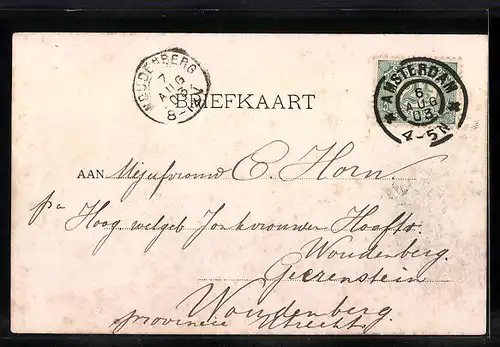 WOUDENBERG
7
AUG
03
8-
BRIEFKAART
AMSTERDAM
6
AUG
03
4-5N
AAN Mejufvrouw C. Horn
p/a
Hoog welgeb Jonkvrouwen Hooft
Woudenberg.
Geerenstein
Woudenberg.
provincie Utrecht